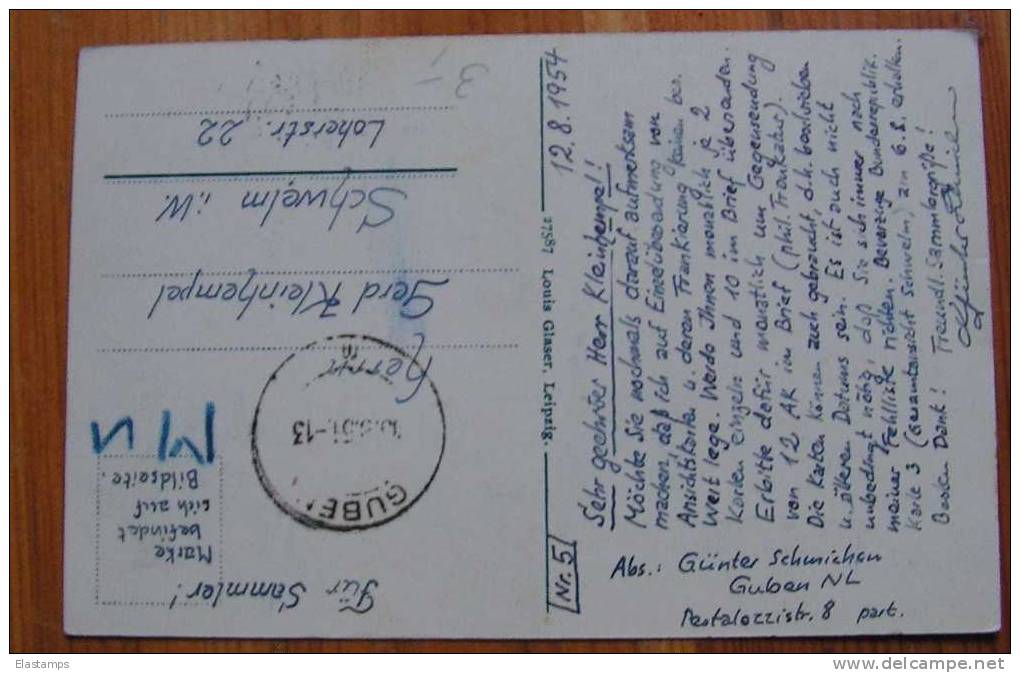 12.8.1954
Sehr geehrter Herr Kleinhempel!
Möchte Sie nochmals darauf aufmerksam
machen daß ich auf Einzelübersendung von
Ansichtskarten u. deren Frankierung keinen bes.
Wert lege. Werde Ihnen monatlich je 2
Karten einzeln und 10 im Brief übersenden.
Erbitte dafür monatlich um Gegensendung
von 12 AK im Brief (phil. Frankatur).
Die Karten können auch gebraucht, d.h. beschrieben
u. älteren Datums sein. Es ist auch nicht
unbedingt nötig, daß Sie sich immer nach
meiner Fehlliste richten. Bevorzuge Bundesrepublik.
Karte 3 (Gesamtansicht Schwelm) am 6.8. erhalten.
Besten Dank! Freundl. Sammlergrüße!
Nr. 5
Abs.: Günter Schmichen
Guben NL
Pestalozzistr. 8 part.
27587 Louis Glaser, Leipzig.
Für Sammler!
Marke
befindet
sich auf
Bildseite.
GUBEN
-13
Herrn
Gerd Kleinhempel
Schwelm i.W.
Loherstr. 22
3,-
Elastamps
www.delcampe.net